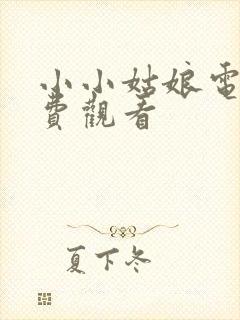 小小姑娘電
費觀看
夏下冬